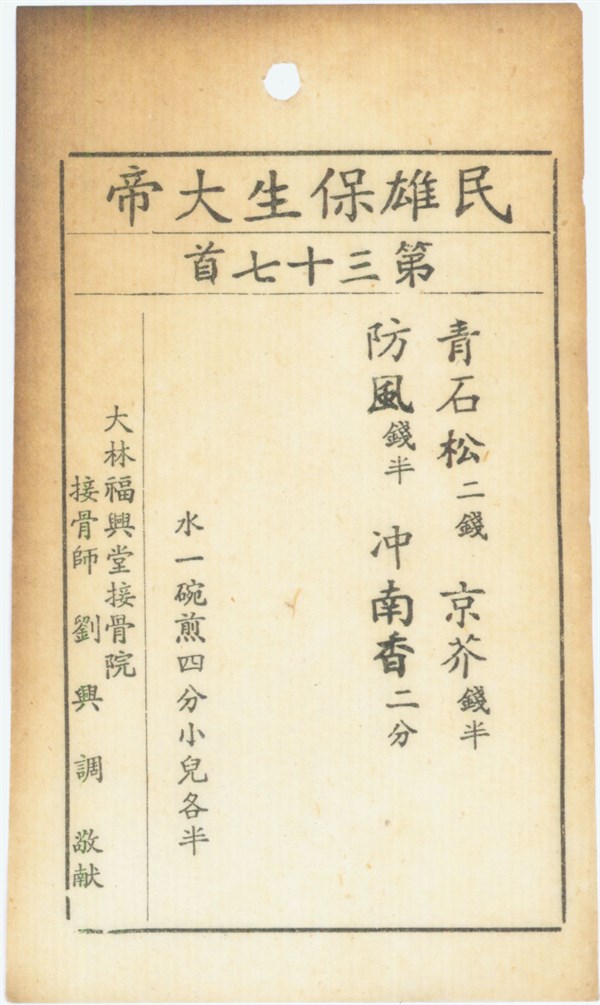 民雄保生大帝
第三十七首
青石松二錢 京芥錢半
防風錢半 冲南香二分
水一碗煎四分小兒各半
大林福興堂接骨院
接骨師 劉興調 敬献